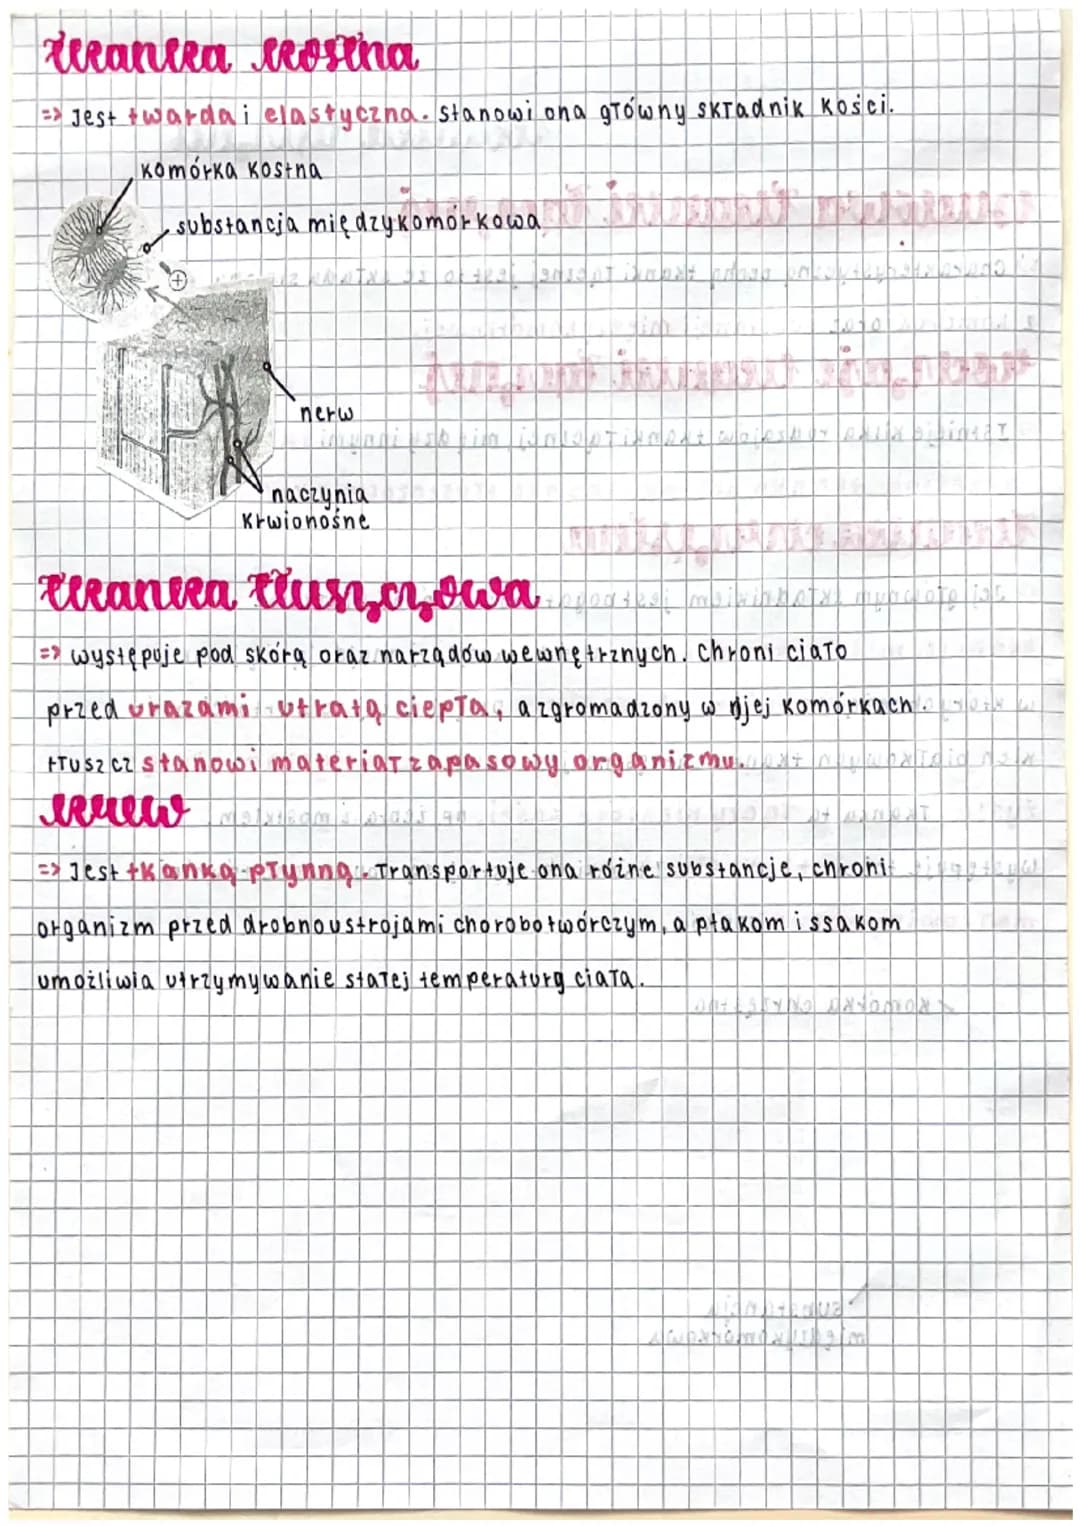 tkanka kostna
=> Jest twarda i elastyczna. Stanowi ona główny składnik kości.
komórka kostna
substancja międzykomórkowa
+
nerw
naczynia
krwionośne
tkanka tłuszczowa
=> występuje pod skórą oraz narządów wewnętrznych. Chroni ciało
przed urazami utratą ciepła, a zgromadzony w njej komórkach.
tłuszcz stanowi materiał zapasowy organizmu.
krew
=> Jest tkanką płynną. Transportuje ona różne substancje, chroni
organizm przed drobnoustrojami chorobotwórczym, a ptakom i ssakom
umożliwia utrzymywanie stałej temperaturg ciała.